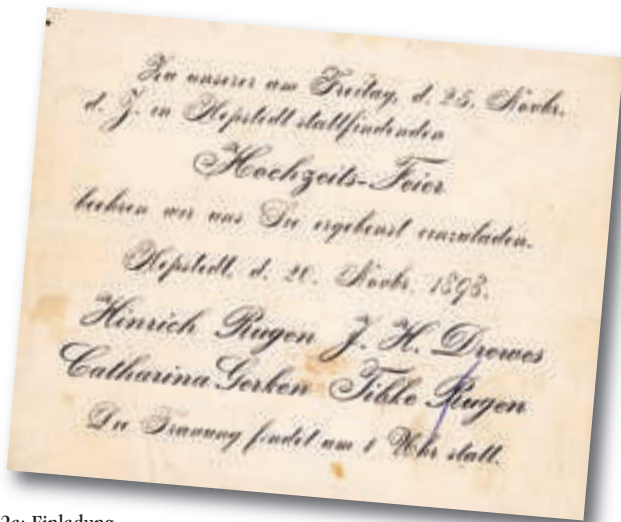 Zu unserer am Freitag, d. 25. Novbr.
d. J. in Hepstedt stattfindenden
Hochzeits-Feier
beehren wir uns Sie ergebenst einzuladen.
Hepstedt, d. 20. Novbr. 1898.
Hinrich Rugen J. H. Drewes
Catharina Gerken Tibke Rugen
Die Trauung findet um 1 Uhr statt.
Einladung